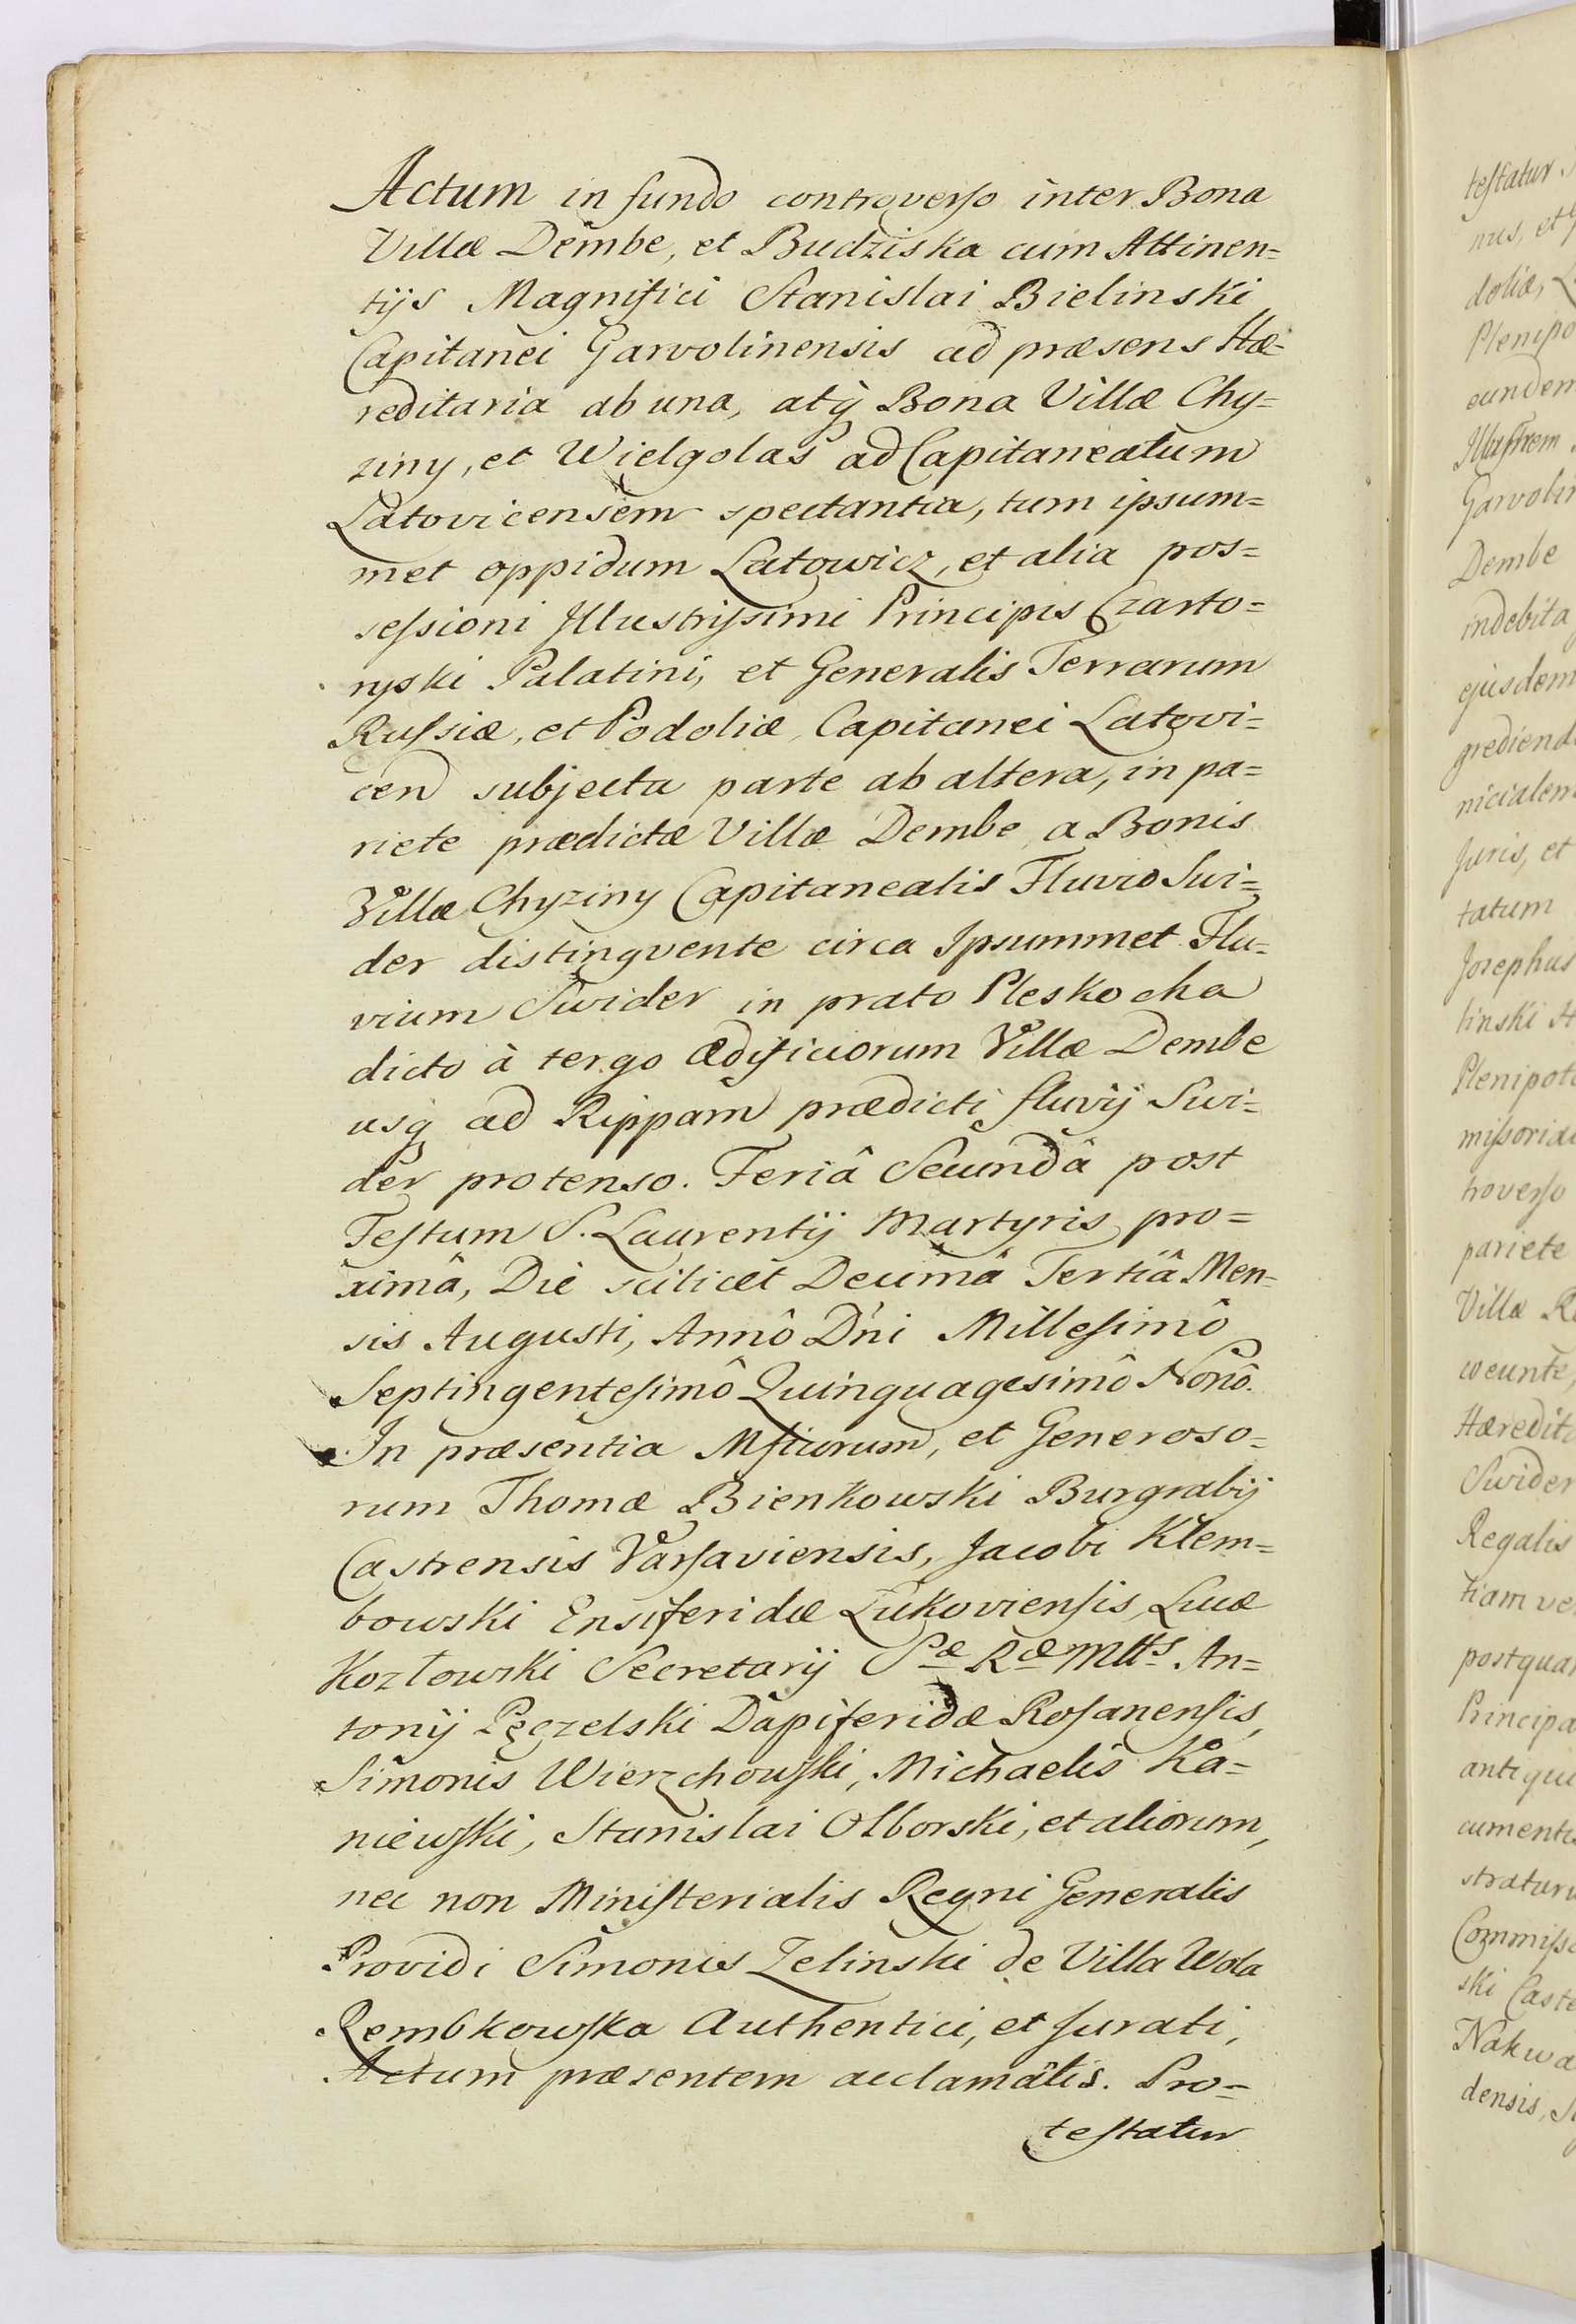 Actum in fundo controverso inter Bona
Villæ Dembe, et Budziska cum Attinen=
tijs Magnifici Stanislai Bielinski
Capitanei Garvolinensis ad præsens Hæ=
reditaria ab una, atq̃ Bona Villæ Chy=
ziny, et Wielgolas ad Capitaneatum
Latovicensem spectantia, tum ipsum=
met oppidum Latowicz, et alia pos=
sessioni Illustrissimi Principis Czarto=
ryski Palatini, et Generalis Terrarum
Russiæ, et Podoliæ, Capitanei Latovi=
cen subjecta parte ab altera, in pa=
riete prædictæ Villæ Dembe, a Bonis
Villæ Chyziny Capitanealis Fluvio Swi=
der distingvente circa Ipsummet Flu=
vium Swider in prato Pleskocha
dicto à tergo ædificiorum Villæ Dembe
usq̃ ad Rippam prædicti fluvij Swi=
der protenso. Feriâ Secundâ post
Festum S. Laurentij Martyris pro=
ximâ, Die scilicet Decimâ Tertiâ Men=
sis Augusti, Annô Dni Millesimô
Septingentesimô Quinquagesimô Nonô.
In præsentia Mfficorum, et Generoso=
rum Thomæ Bienkowski Burgrabij
Castrensis Varsaviensis, Jacobi Klem=
bowski Ensiferidæ Lukoviensis, Lucæ
Kozłowski Secretarij Sæ Ræ Mttis An=
tonij Pęczelski Dapiferidæ Rosanensis,
Simonis Wierzchowski, Michaelis Ka=
niewski, Stanislai Olborski, et aliorum,
nec non Ministerialis Regni Generalis
Providi Simonis Zelinski de Villa Wola
Rembkowska Authentici, et Jurati,
Actum præsentem acclamatis. Pro=
testatur
testatur
doliæ,
eundem
Illustrem
Dembe
indebita
ejusdem
Juris, et
tatum
Josephus
troverso
pariete
Swider
Regalis
densis,